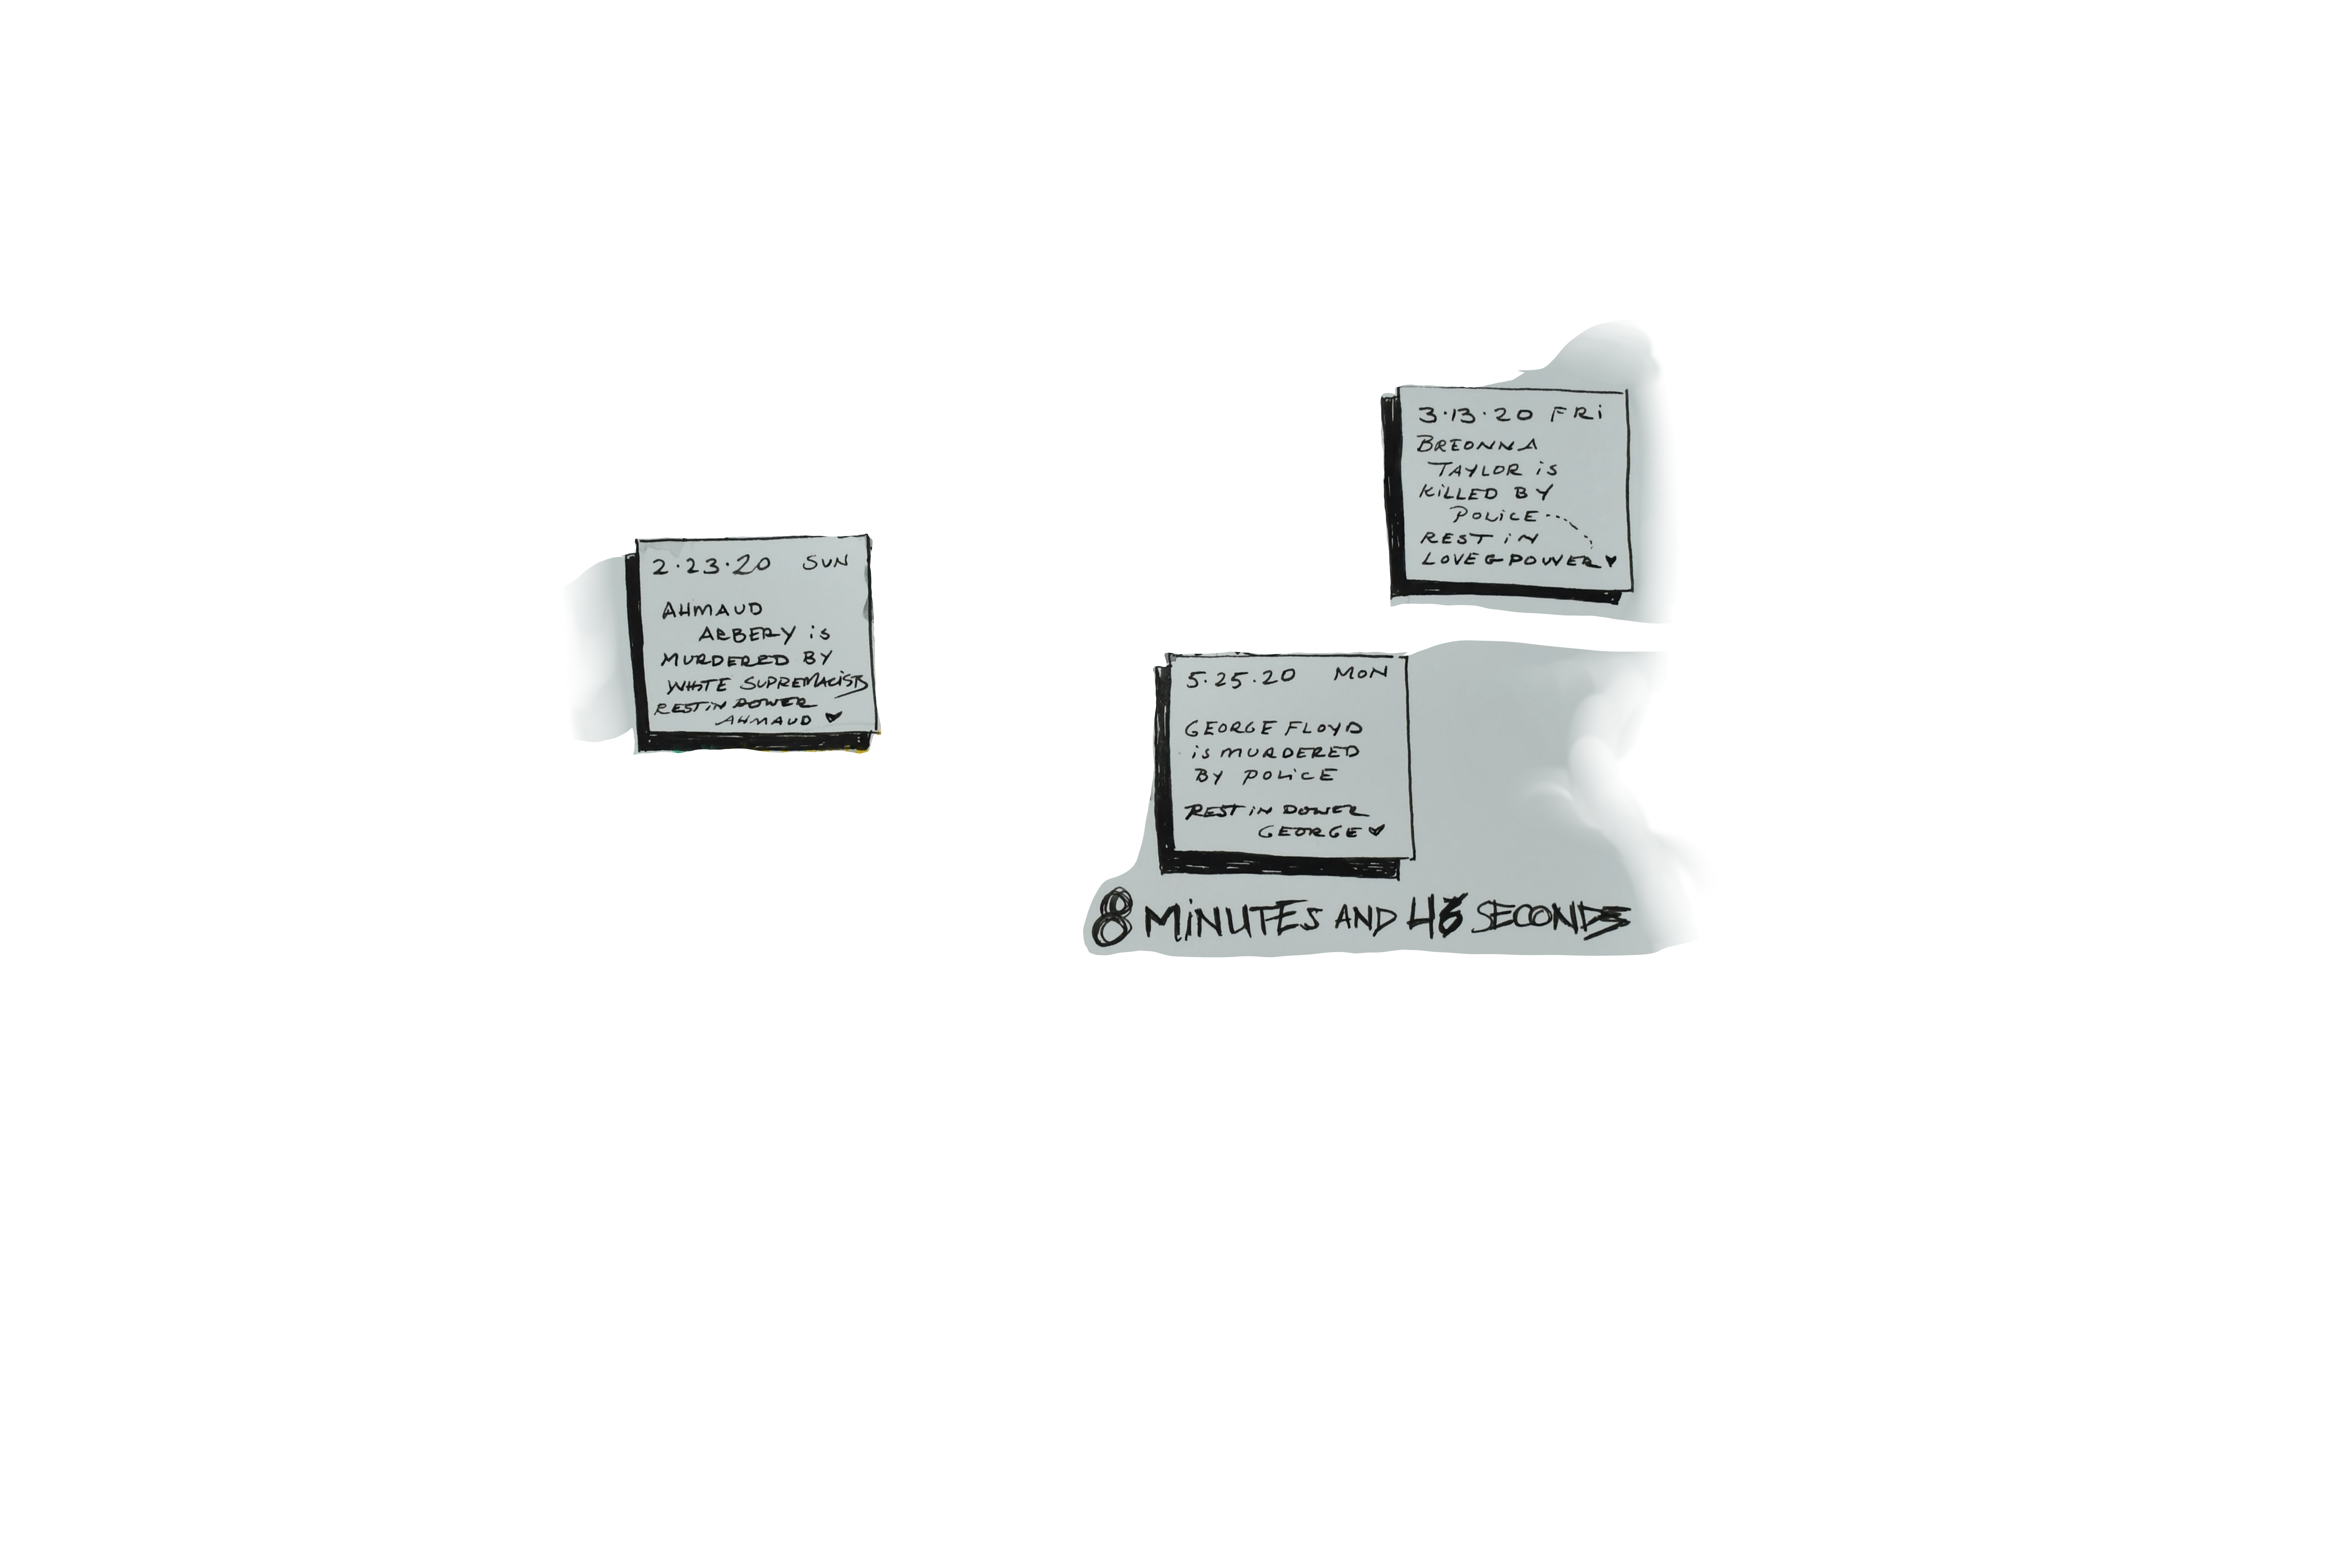 2.23.20 SUN
AHMAUD
ARBERY is
MURDERED BY
WHITE SUPREMACISTS
REST iN POWER
AHMAUD
3.13.20 FRi
BREONNA
TAYLOR iS
KiLLED BY
POLiCE
REST iN
LOVE & POWER
5.25.20 MON
GEORGE FLOYD
iS MURDERED
BY POLiCE
REST iN POWER
GEORGE
8 MiNUTES AND 46 SECONDS